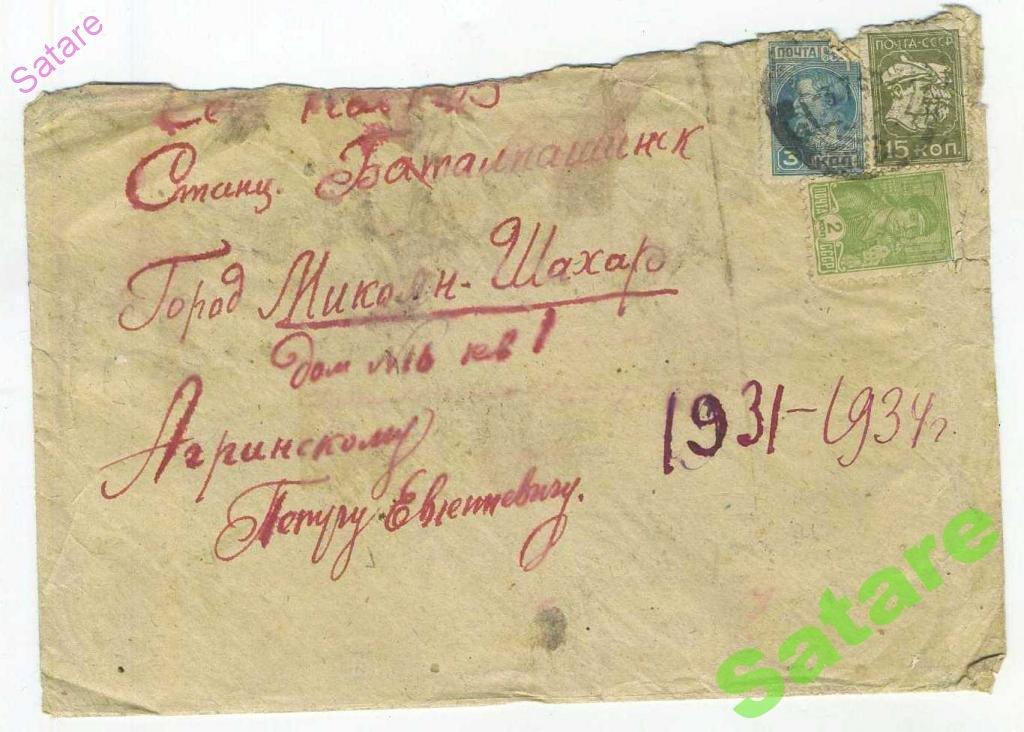 Satare
ПОЧТА
3 КОП
ПОЧТА-СССР
15 КОП.
ПОЧТА
2 КОП
СССР
Станц. Баталпашинск
Город Микоян-Шахар
дом №16 кв 1
Агринскому
Петру Евгеневичу.
1931-1934г.
Satare